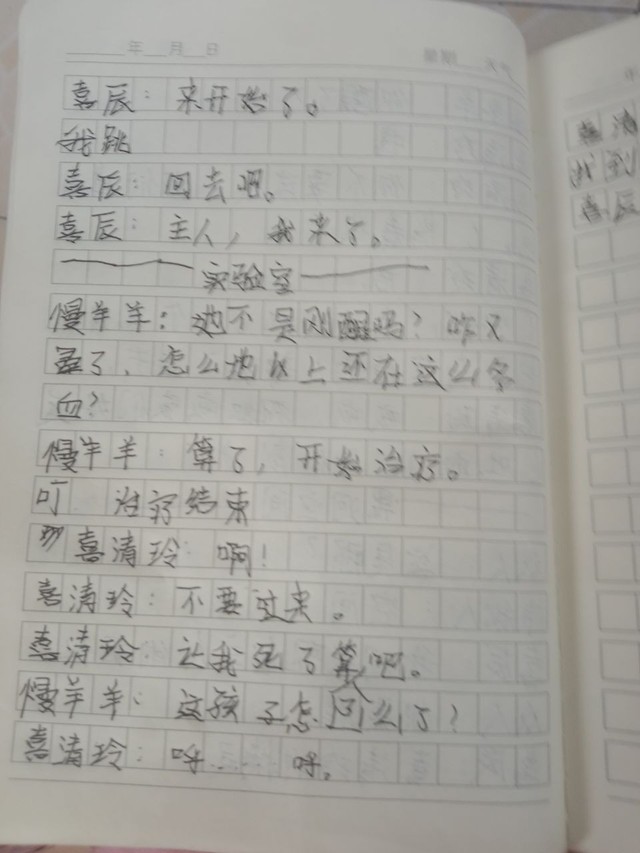 年 月 日 星期
喜辰：来开始了。
我跳
喜辰：回去吧。
喜辰：主人，我来了。
实验室
慢羊羊：她不是刚醒吗？咋又
晕了，怎么地板上还在这么多
血？
慢羊羊：算了，开始治疗。
叮 治疗结束
喜清玲 啊！
喜清玲：不要过来。
喜清玲：让我死了算吧。
慢羊羊：这孩子怎回么了？
喜清玲：呼…… 呼。
喜清
我到
喜辰